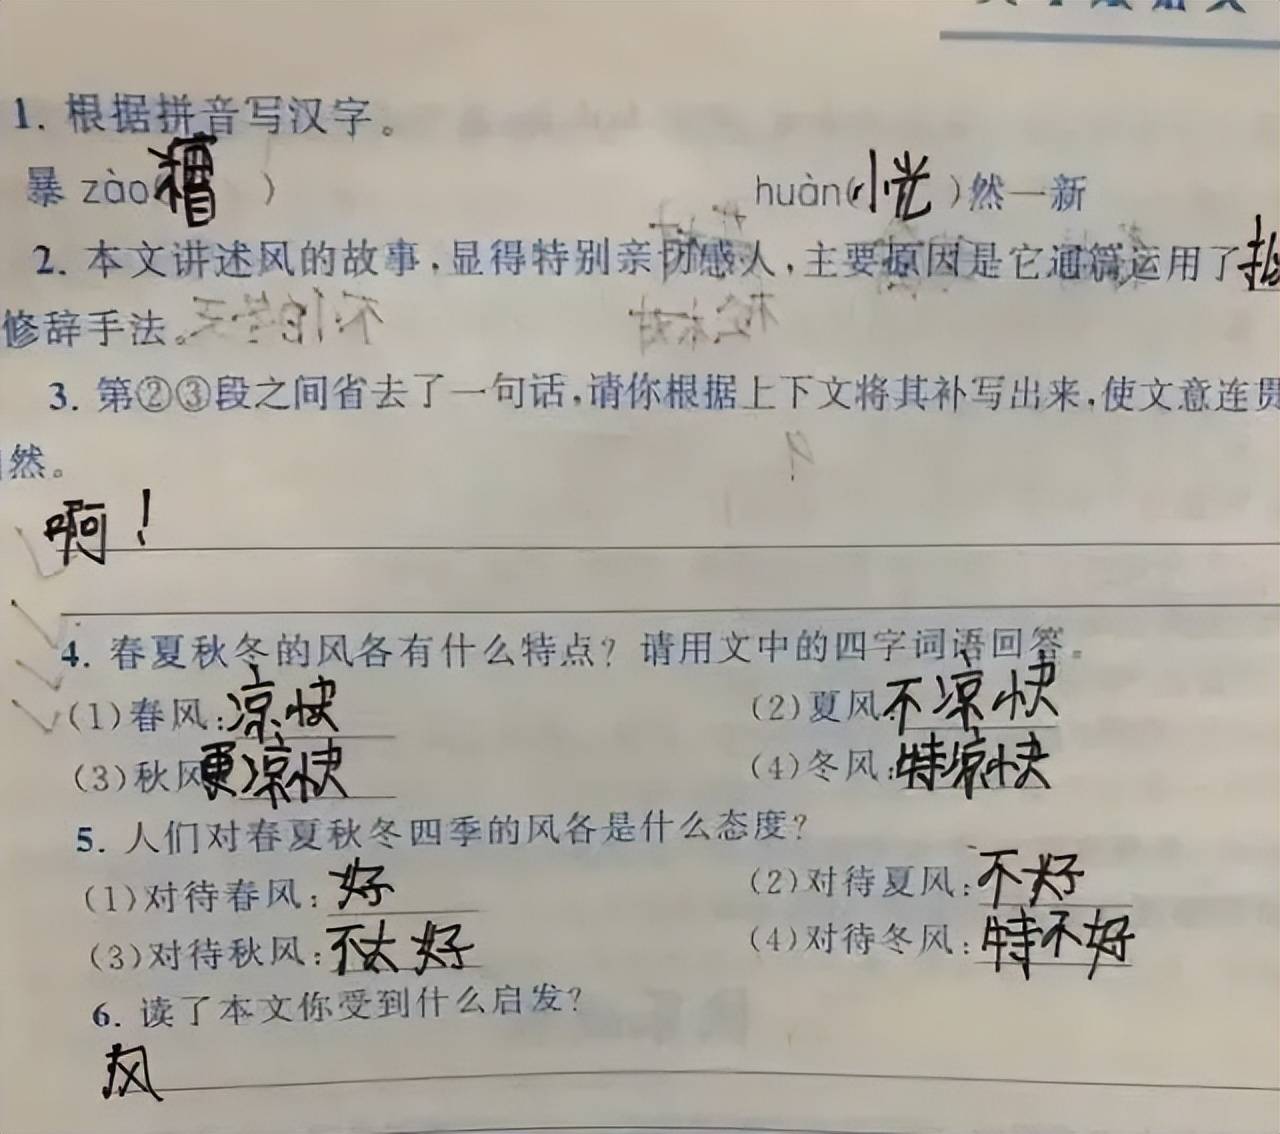 1. 根据拼音写汉字。
暴 zào(糟 ) huàn( )然一新
2. 本文讲述风的故事,显得特别亲切感人,主要原因是它通篇运用了
修辞手法。
3. 第②③段之间省去了一句话,请你根据上下文将其补写出来,使文意连贯
然。
啊!
4. 春夏秋冬的风各有什么特点?请用文中的四字词语回答。
(1)春风:凉快 (2)夏风:不凉快
(3)秋风更凉快 (4)冬风:特凉快
5. 人们对春夏秋冬四季的风各是什么态度?
(1)对待春风:好 (2)对待夏风:不好
(3)对待秋风:不太好 (4)对待冬风:特不好
6. 读了本文你受到什么启发?
风